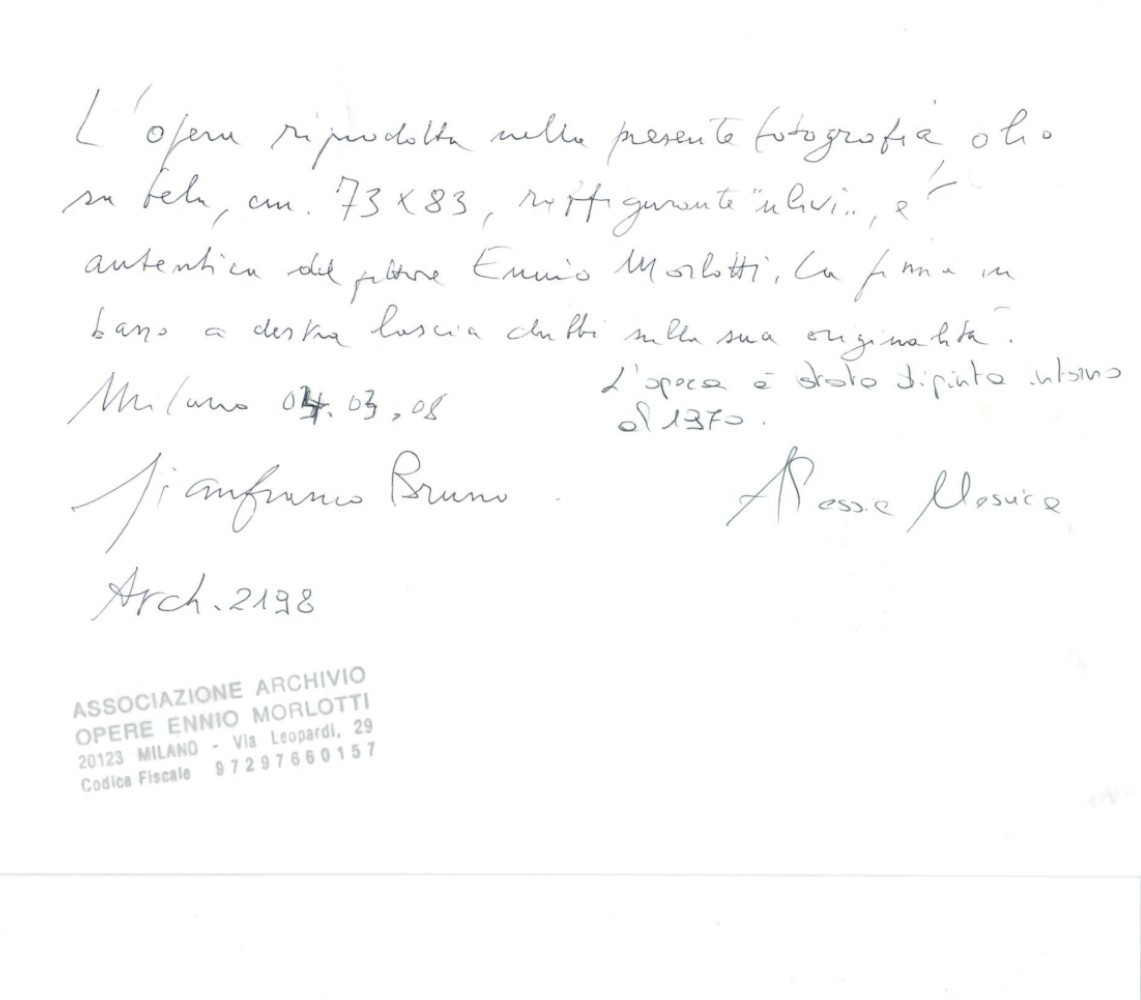 L'opera riprodotta nella presente fotografia olio
su tela, cm. 73 x 83, raffigurante "ulivi", è
autentica del pittore Ennio Morlotti, la firma in
basso a destra lascia dubbi sulla sua originalità.
L'opera è stata dipinta intorno
al 1970.
Milano 04.03.08
Gianfranco Bruno
Arch. 2198
ASSOCIAZIONE ARCHIVIO
OPERE ENNIO MORLOTTI
20123 MILANO - Via Leopardi, 29
Codice Fiscale 97297660157